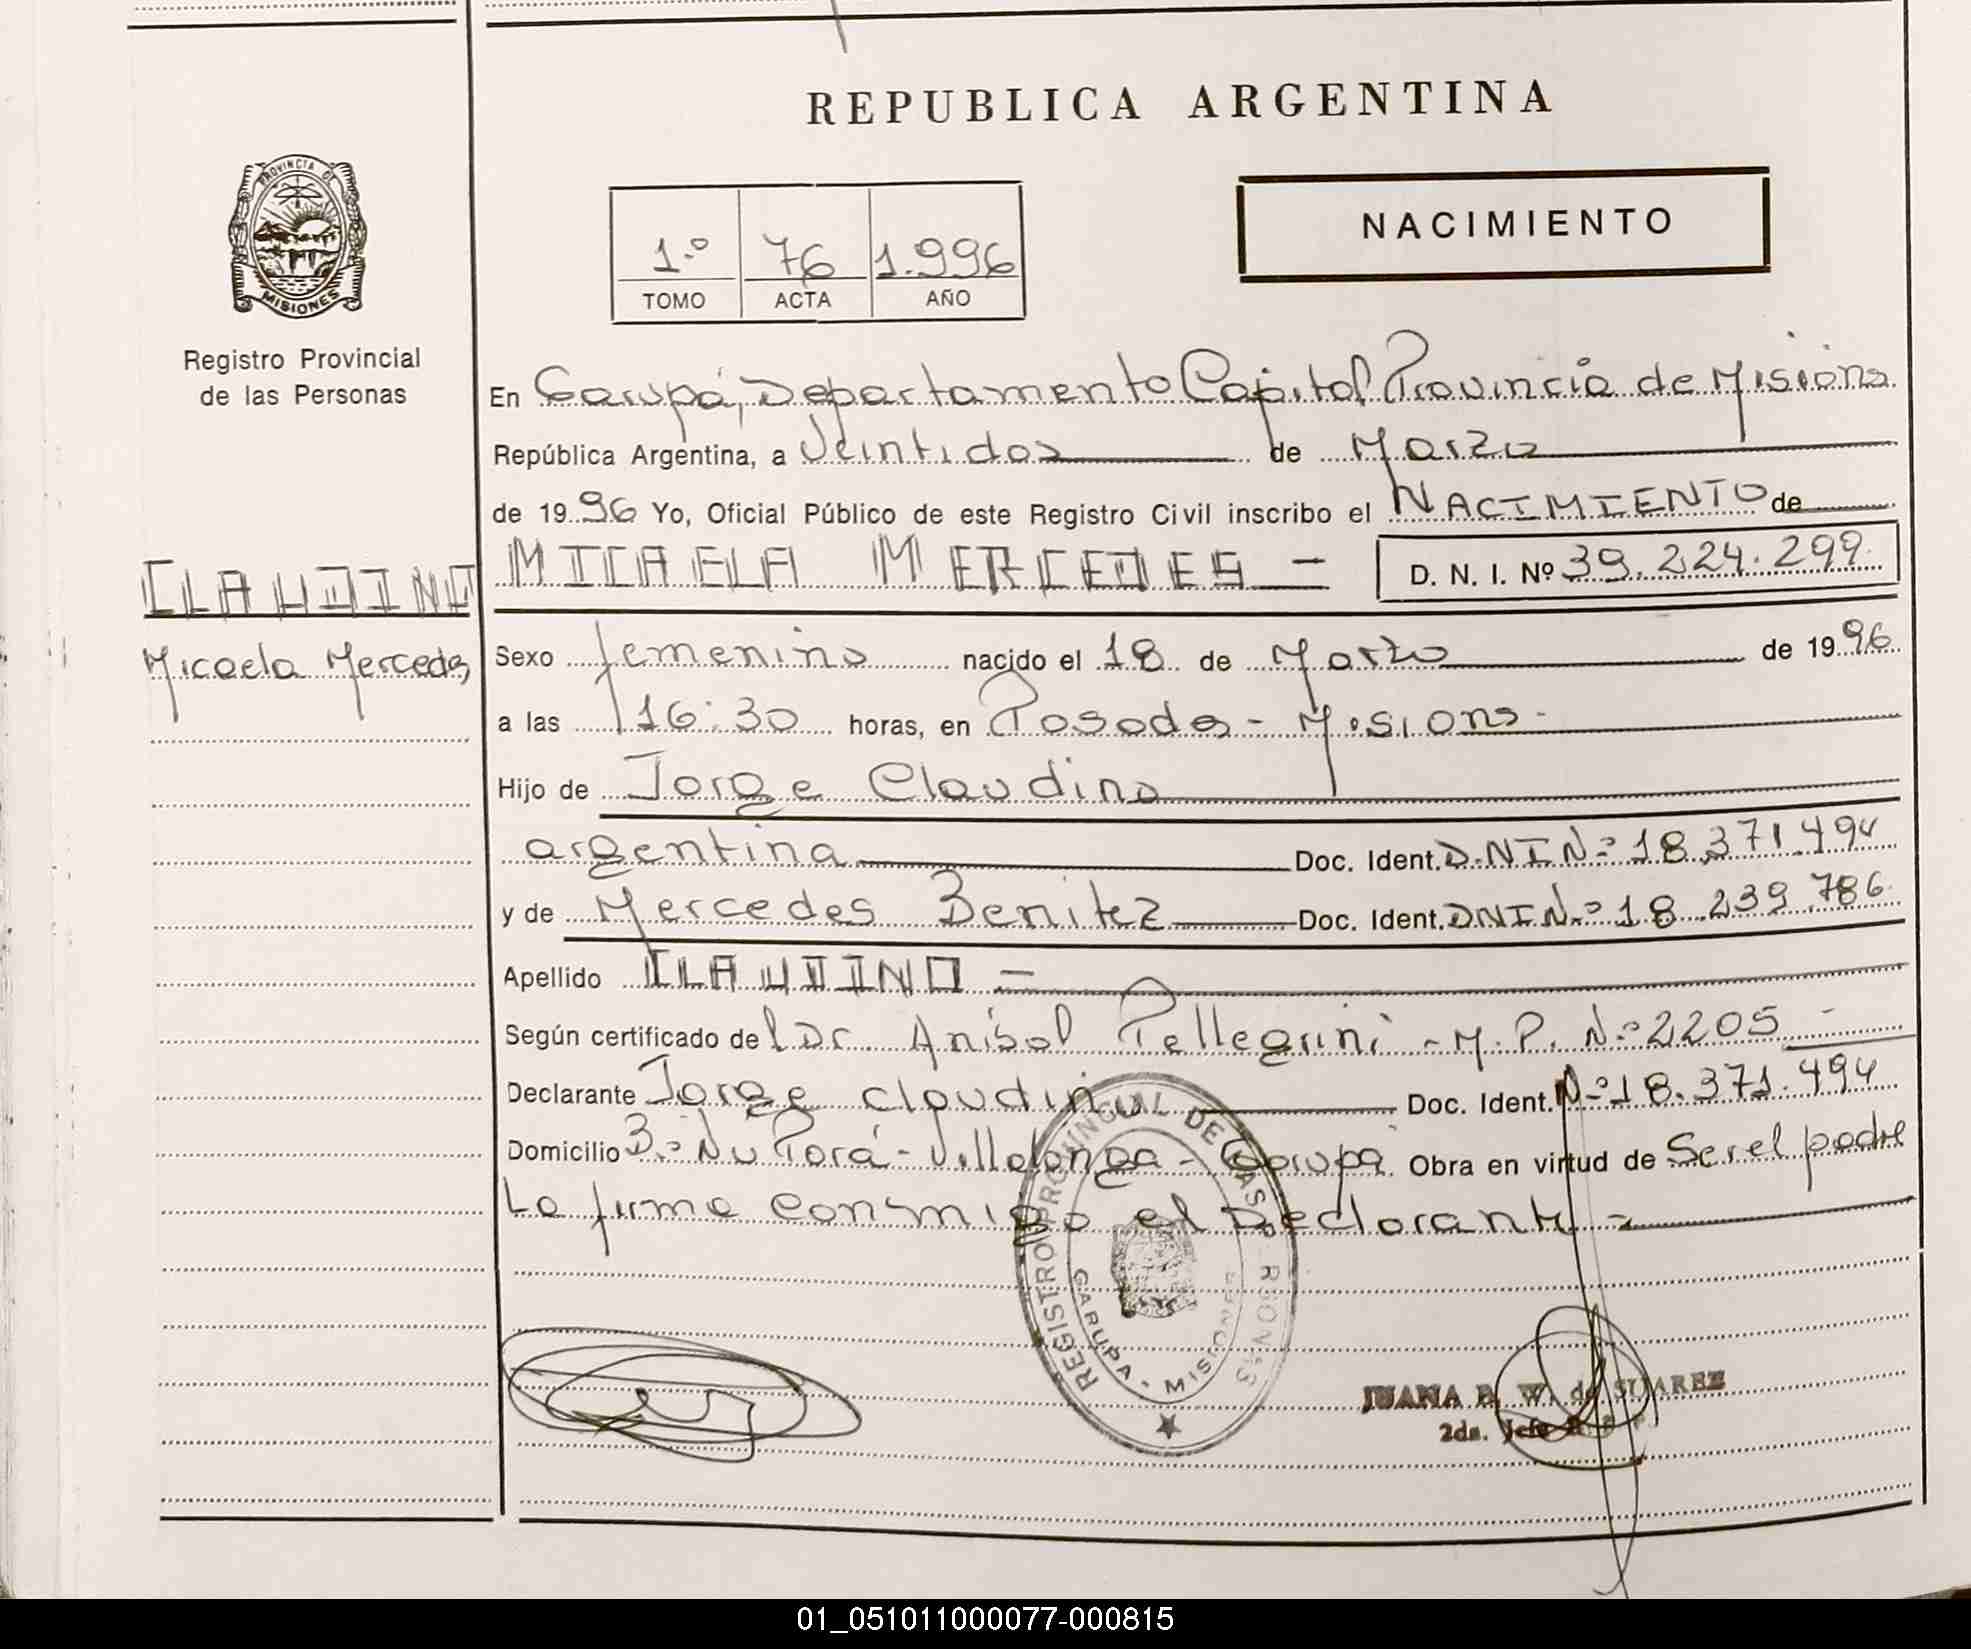 REPUBLICA ARGENTINA
PROVINCIA DE MISIONES
Registro Provincial
de las Personas
1.º 76 1.996
TOMO ACTA AÑO
NACIMIENTO
En Garupá, Departamento Capital Provincia de Misiones
República Argentina, a Veintidos de Marzo
de 1996 Yo, Oficial Público de este Registro Civil inscribo el NACIMIENTO de
CLAUDINO
Micaela Mercedes
MICAELA MERCEDES - D. N. I. Nº 39.224.299
Sexo femenino nacido el 18 de Marzo de 1996
a las 16:30 horas, en Posadas - Misiones.
Hijo de Jorge Claudino
argentina Doc. Ident. D.N.I Nº 18.371.494
y de Mercedes Benitez Doc. Ident. DNI Nº 18.239.786
Apellido CLAUDINO -
Según certificado del Dr. Aníbal Pellegrini - M.P. Nº 2205 -
Declarante Jorge Claudino Doc. Ident. Nº 18.371.494
Domicilio Bº Ñu Porá - Villalonga - Garupá Obra en virtud de Ser el padre
La firma conmigo el Declarante -
REGISTRO PROVINCIAL DE LAS PERSONAS
GARUPA - MISIONES
JUANA B. W. de SUAREZ
2da. Jefe
01_051011000077-000815